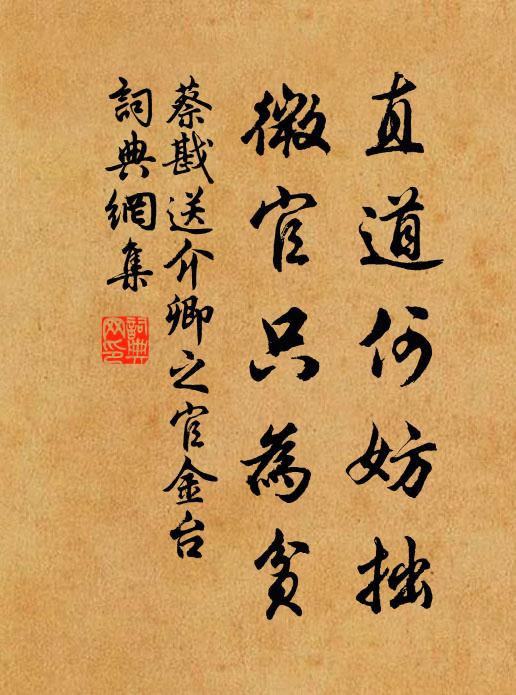 直道何妨拙
微官只為貧
蔡戡送介卿之官金台
詞典網集
詞典网印